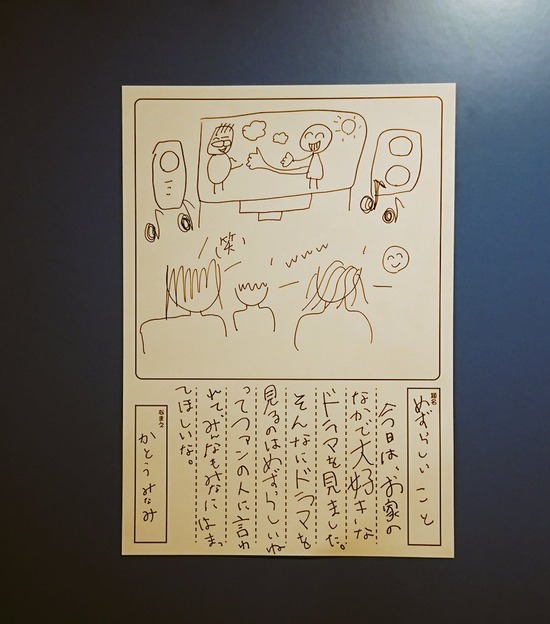 (笑)
wwww
題名
めずらしい こと
今日は、お家の
なかで大好きな
ドラマを見ました。
そんなにドラマを
見るのはめずらしいね
ってファンの人に言わ
れて、みんなもみなにはまっ
てほしいな。
なまえ
かとう みなみ